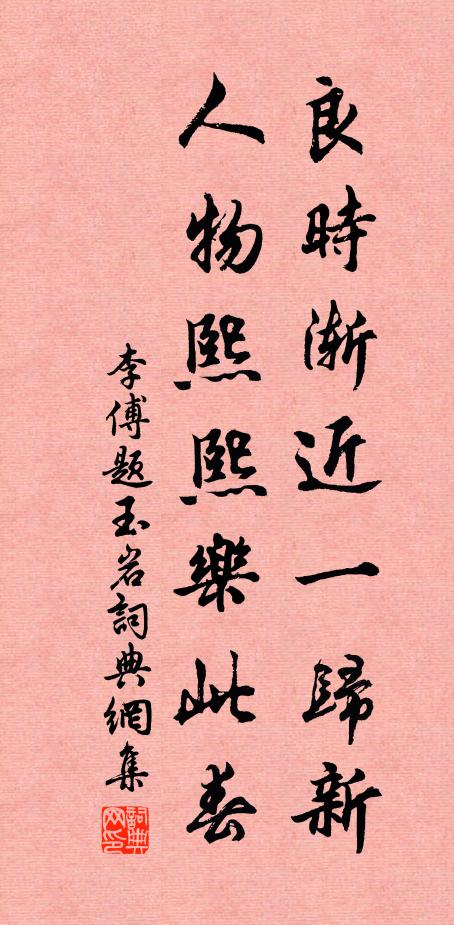 良時漸近一歸新
人物熙熙樂此春
李傅題玉岩詞典網集
詞典网印